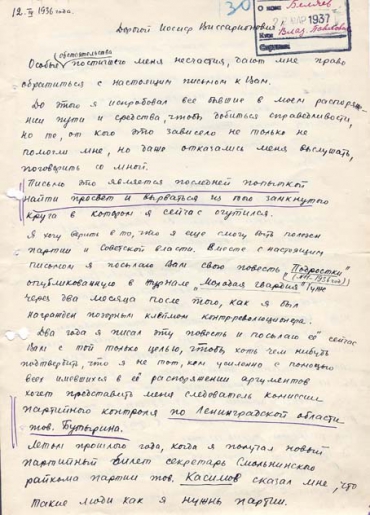 12. IV 1936 года.
30
О ком Беляев
МАР 1937
Кем Влад. Павлович
Дорогой Иосиф Виссарионович
обстоятельства
Особые постигшего меня несчастия, дают мне право
обратиться с настоящим письмом к Вам.
До этого я испробовал все бывшие в моем распоряже-
нии пути и средства, чтобы добиться справедливости,
но те, от кого это зависело не только не
помогли мне, но даже отказались меня выслушать,
поговорить со мной.
Письмо это является последней попыткой
найти просвет и вырваться из того замкнутого
круга в котором я сейчас очутился.
Я хочу верить в то, что я еще смогу быть полезен
партии и Советской власти. Вместе с настоящим
письмом я посылаю Вам свою повесть „Подростки"
опубликованную в журнале „Молодая гвардия"
через два месяца после того, как я был
награжден позорным клеймом контрреволюционера.
Два года я писал эту повесть и посылаю её сейчас
Вам с той только целью, чтобы хоть чем нибудь
подтвердить, что я не тот, кем усиленно с помощью
всех имевшихся в её распоряжении аргументов
хочет представить меня следователь комиссии
партийного контроля по Ленинградской области
тов. Бутырина.
Летом прошлого года, когда я получал новый
партийный билет секретарь Смольнинского
райкома партии тов. Касимов сказал мне, что
такие люди как я нужны партии.